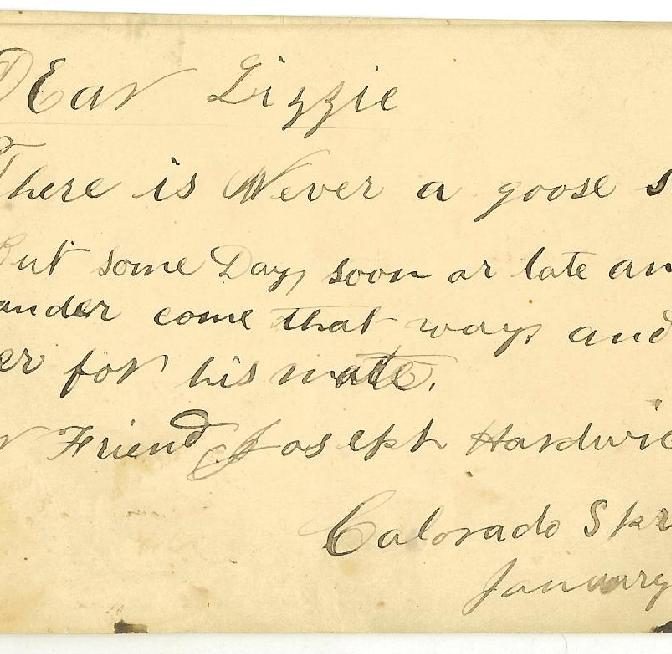 Dear Lizzie
There is Never a goose s
But some Day soon or late an
ander come that way and
er for his mate.
r Friend Joseph Hardwic
Colorado Spr
January